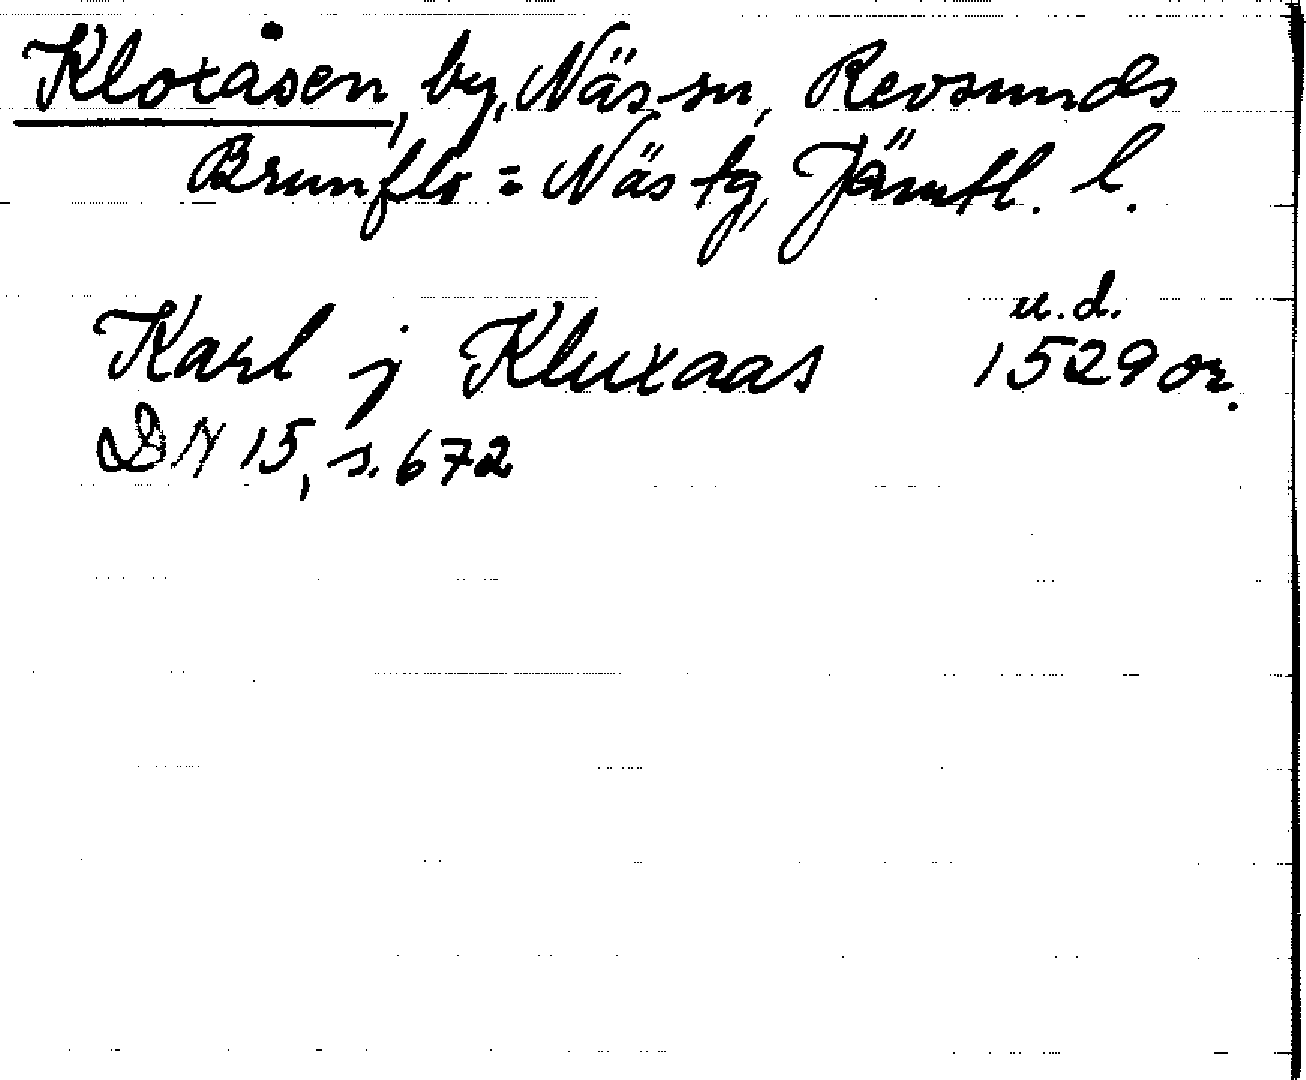 Kloxåsen, by, Näs sn, Revsunds
Brunflo = Näs tg, Jämtl. l.
u.d.
Karl j Kluxaas 1529 or.
DN 15, s. 672